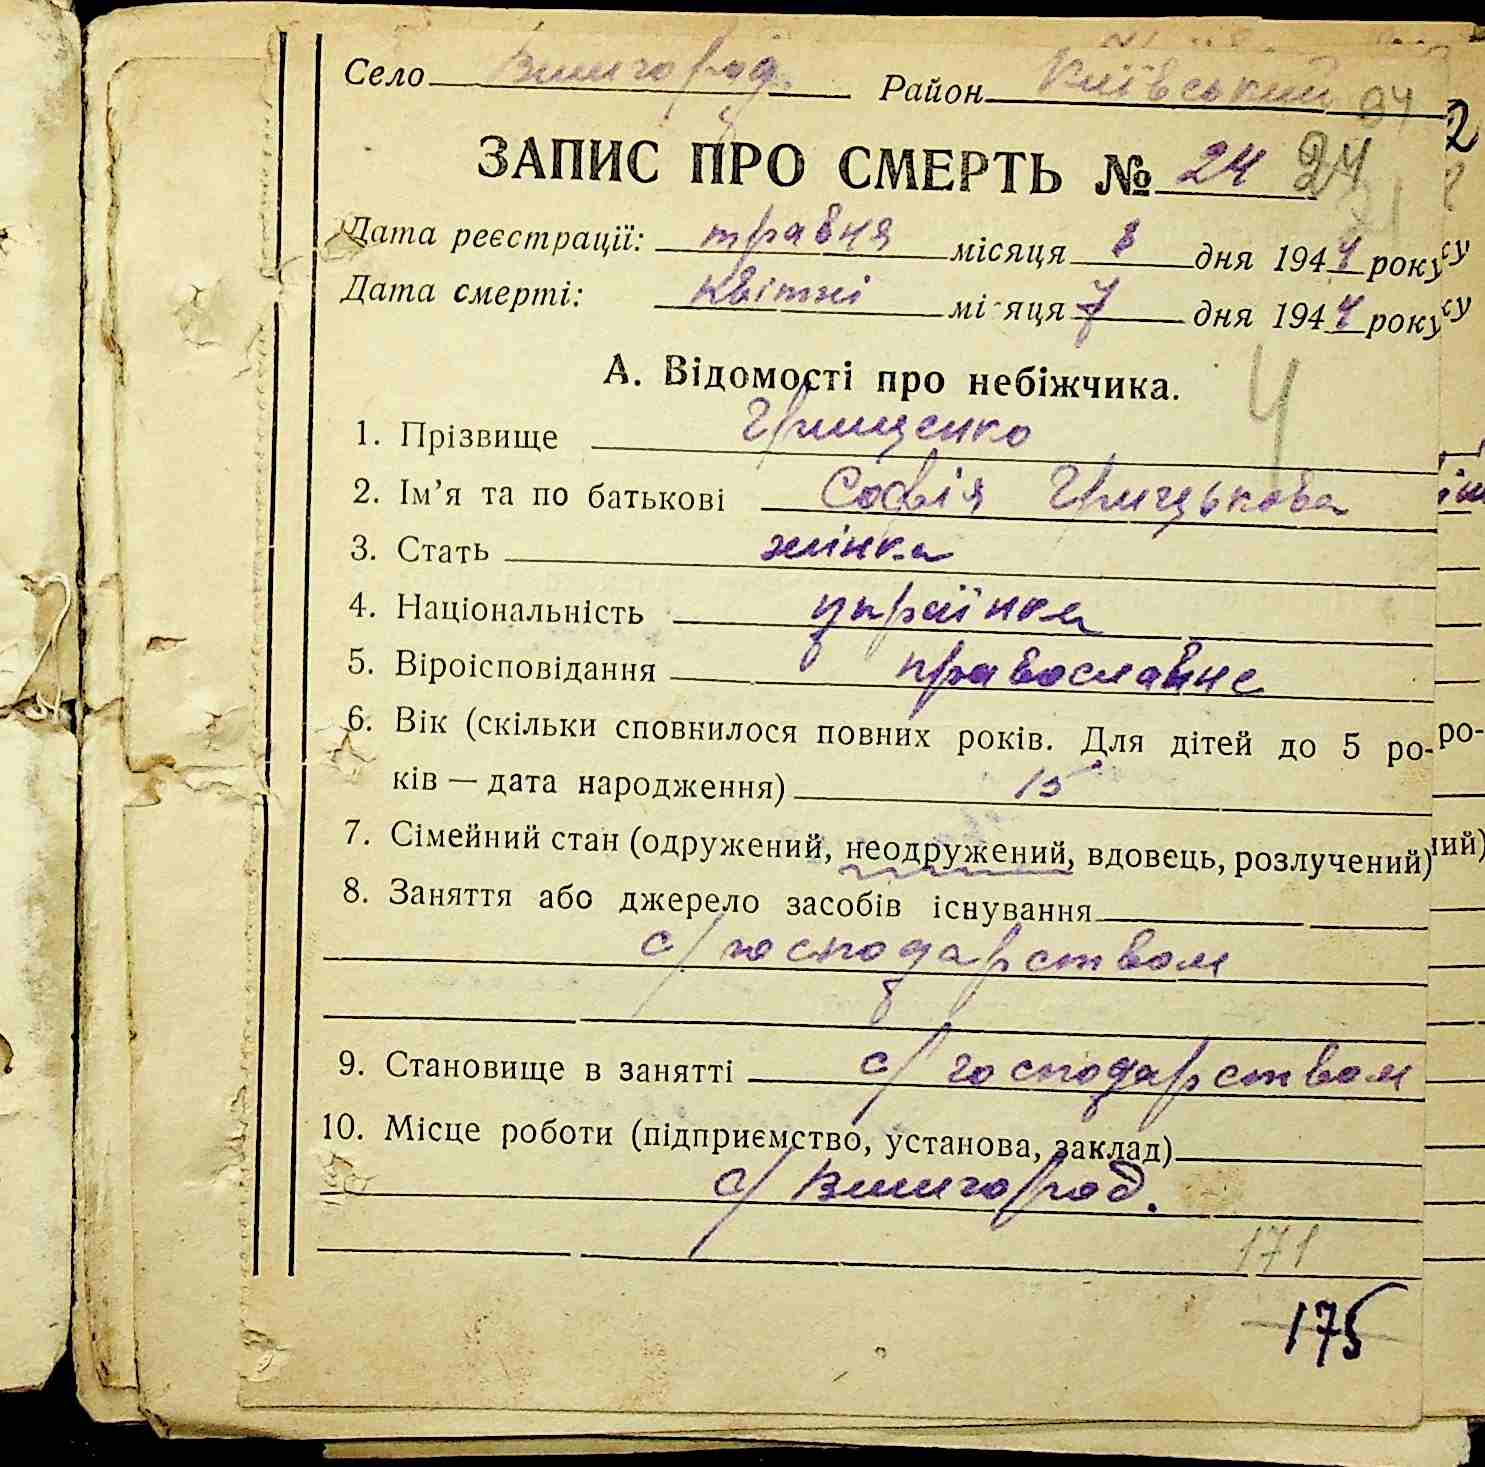 Село Вишгород. Район Київський 94
ЗАПИС ПРО СМЕРТЬ № 24 24
Дата реєстрації: травня місяця 8 дня 1944 року
Дата смерті: квітні місяця 7 дня 1944 року
А. Відомості про небіжчика. 4
1. Прізвище Грищенко
2. Ім'я та по батькові Софія Грицькова
3. Стать жінка
4. Національність українка
5. Віроісповідання православне
6. Вік (скільки сповнилося повних років. Для дітей до 5 ро-
ків — дата народження) 15
7. Сімейний стан (одружений, неодружений, вдовець, розлучений)
8. Заняття або джерело засобів існування
с/господарством
9. Становище в занятті с/господарством
10. Місце роботи (підприємство, установа, заклад)
с/Вишгород.
171
175